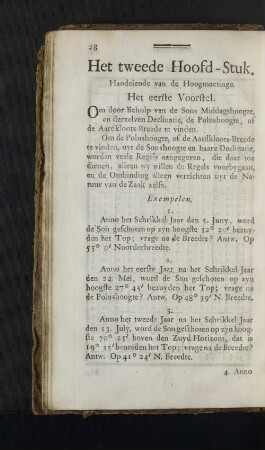 28
Het tweede Hoofd-Stuk.
Handelende van de Hoogmeetinge.
Het eerste Voorstel.
Om door Behulp van de Sons Middagshoogte,
en derzelven Declinatie, de Polushoogte, of
de Aardkloots-Breede te vinden.
Om de Polushoogte, of de Aardkloots-Breede
te vinden, uyt de Sonshoogte en haare Declinatie,
worden veele Regels aangegeven, die daar toe
dienen, alleen wy willen de Regels voorbygaan,
en de Ontbinding alleen verrichten uyt de Na-
tuur van de Zaak zelfs.
Exempelen.
1.
Anno het Schrikkel-Jaar den 5. Juny, word
de Son geschoten op zyn hoogste 32° 20′ bezuy-
den het Top; vrage na de Breedte? Antw. Op
55° 0′ Noorderbreedte.
2.
Anno het eerste Jaar na het Schrikkel-Jaar
den 24 Mei, word de Son geschoten op zyn
hoogste 27° 45′ bezuyden het Top; vrage na
de Polushoogte? Antw. Op 48° 39′ N. Breedte.
3.
Anno het tweede Jaar na het Schrikkel-Jaar
den 13. July, word de Son geschoten op zyn hoog-
ste 70° 25′ boven den Zuyd Horizont, dat is
19° 35′ beneeden het Top; vrage na de Breedte?
Antw. Op 41° 24′ N. Breedte.
4. Anno